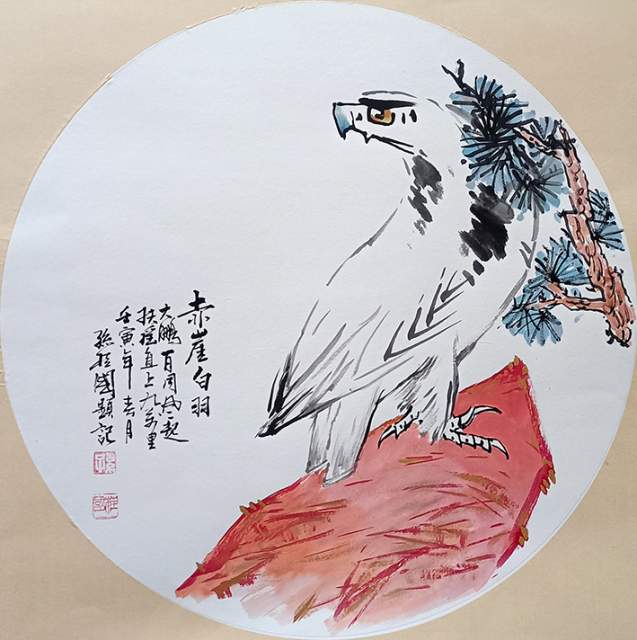 赤崖白羽
大鹏一日同风起
扶摇直上九萬里
壬寅年春月
孫桂國題記